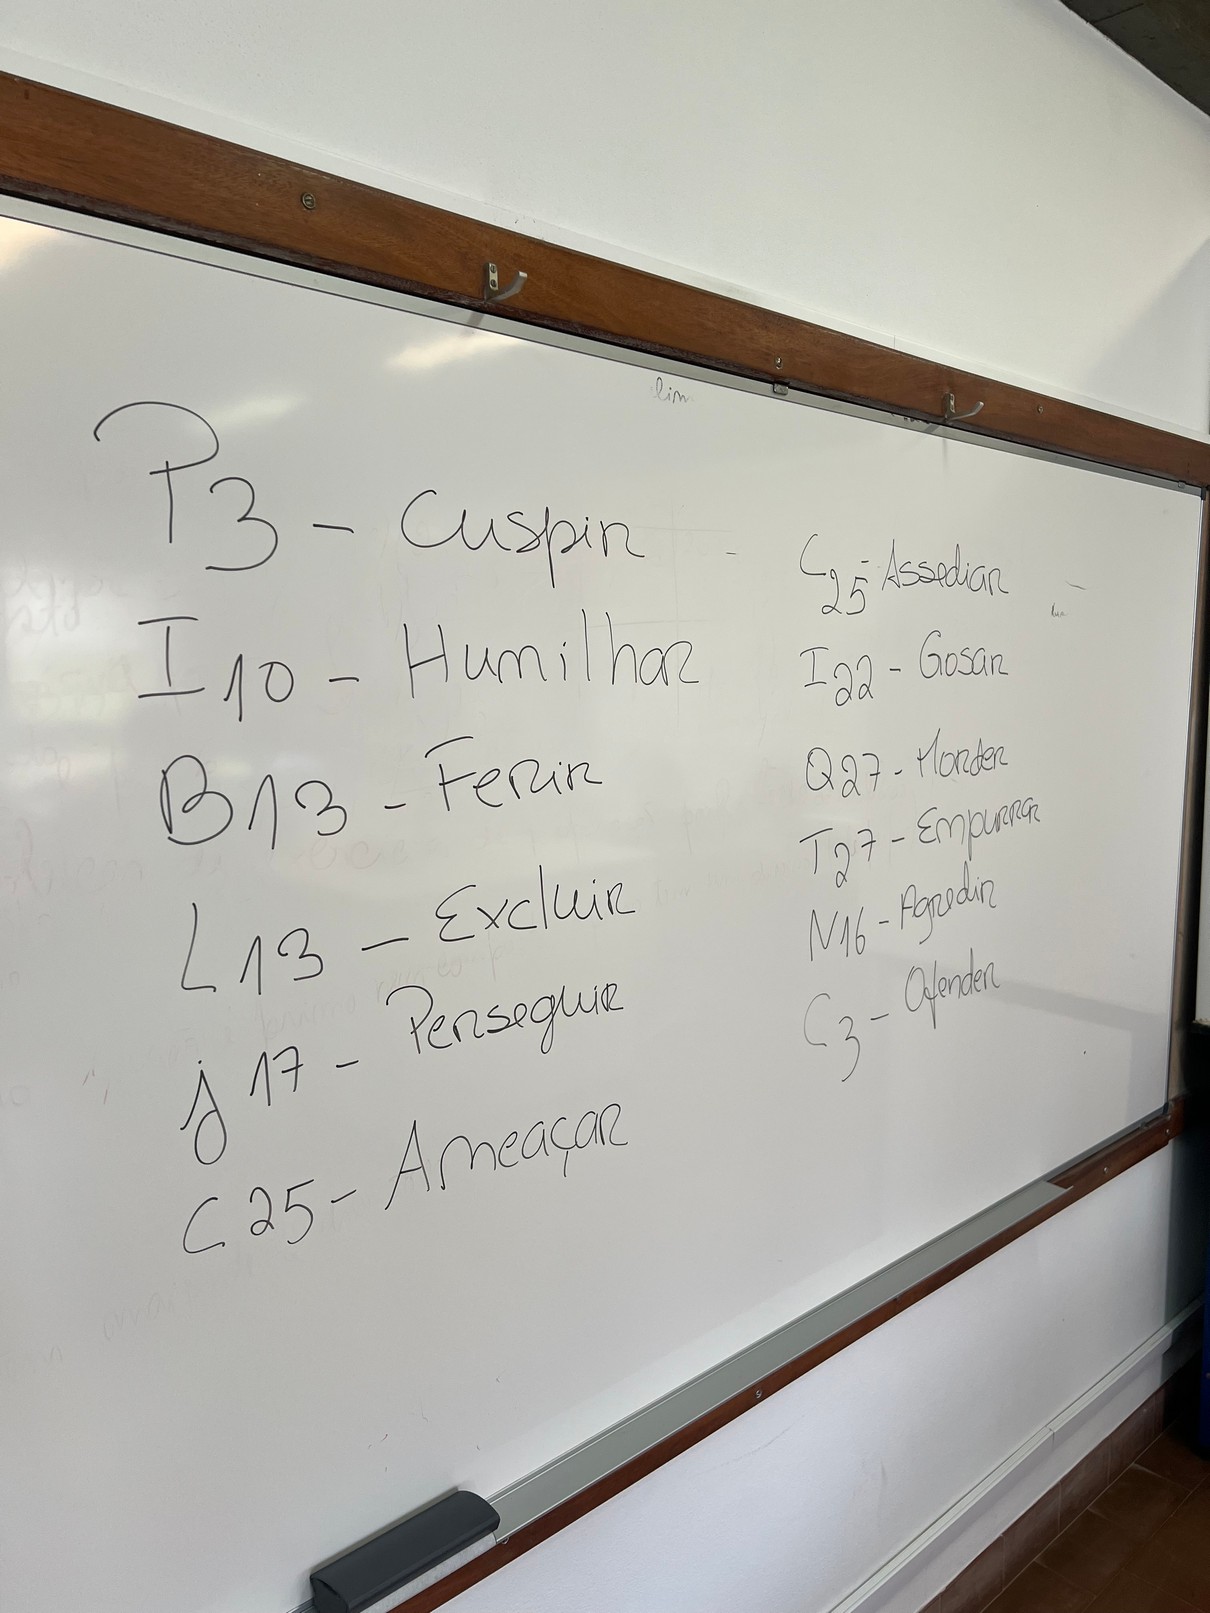 P3 - Cuspir
I10 - Humilhar
B13 - Ferir
L13 - Excluir
j17 - Perseguir
C25 - Ameaçar
C25 - Assediar
I22 - Gosar
Q27 - Morder
T27 - Empurrar
N16 - Agredir
C3 - Ofender
lim